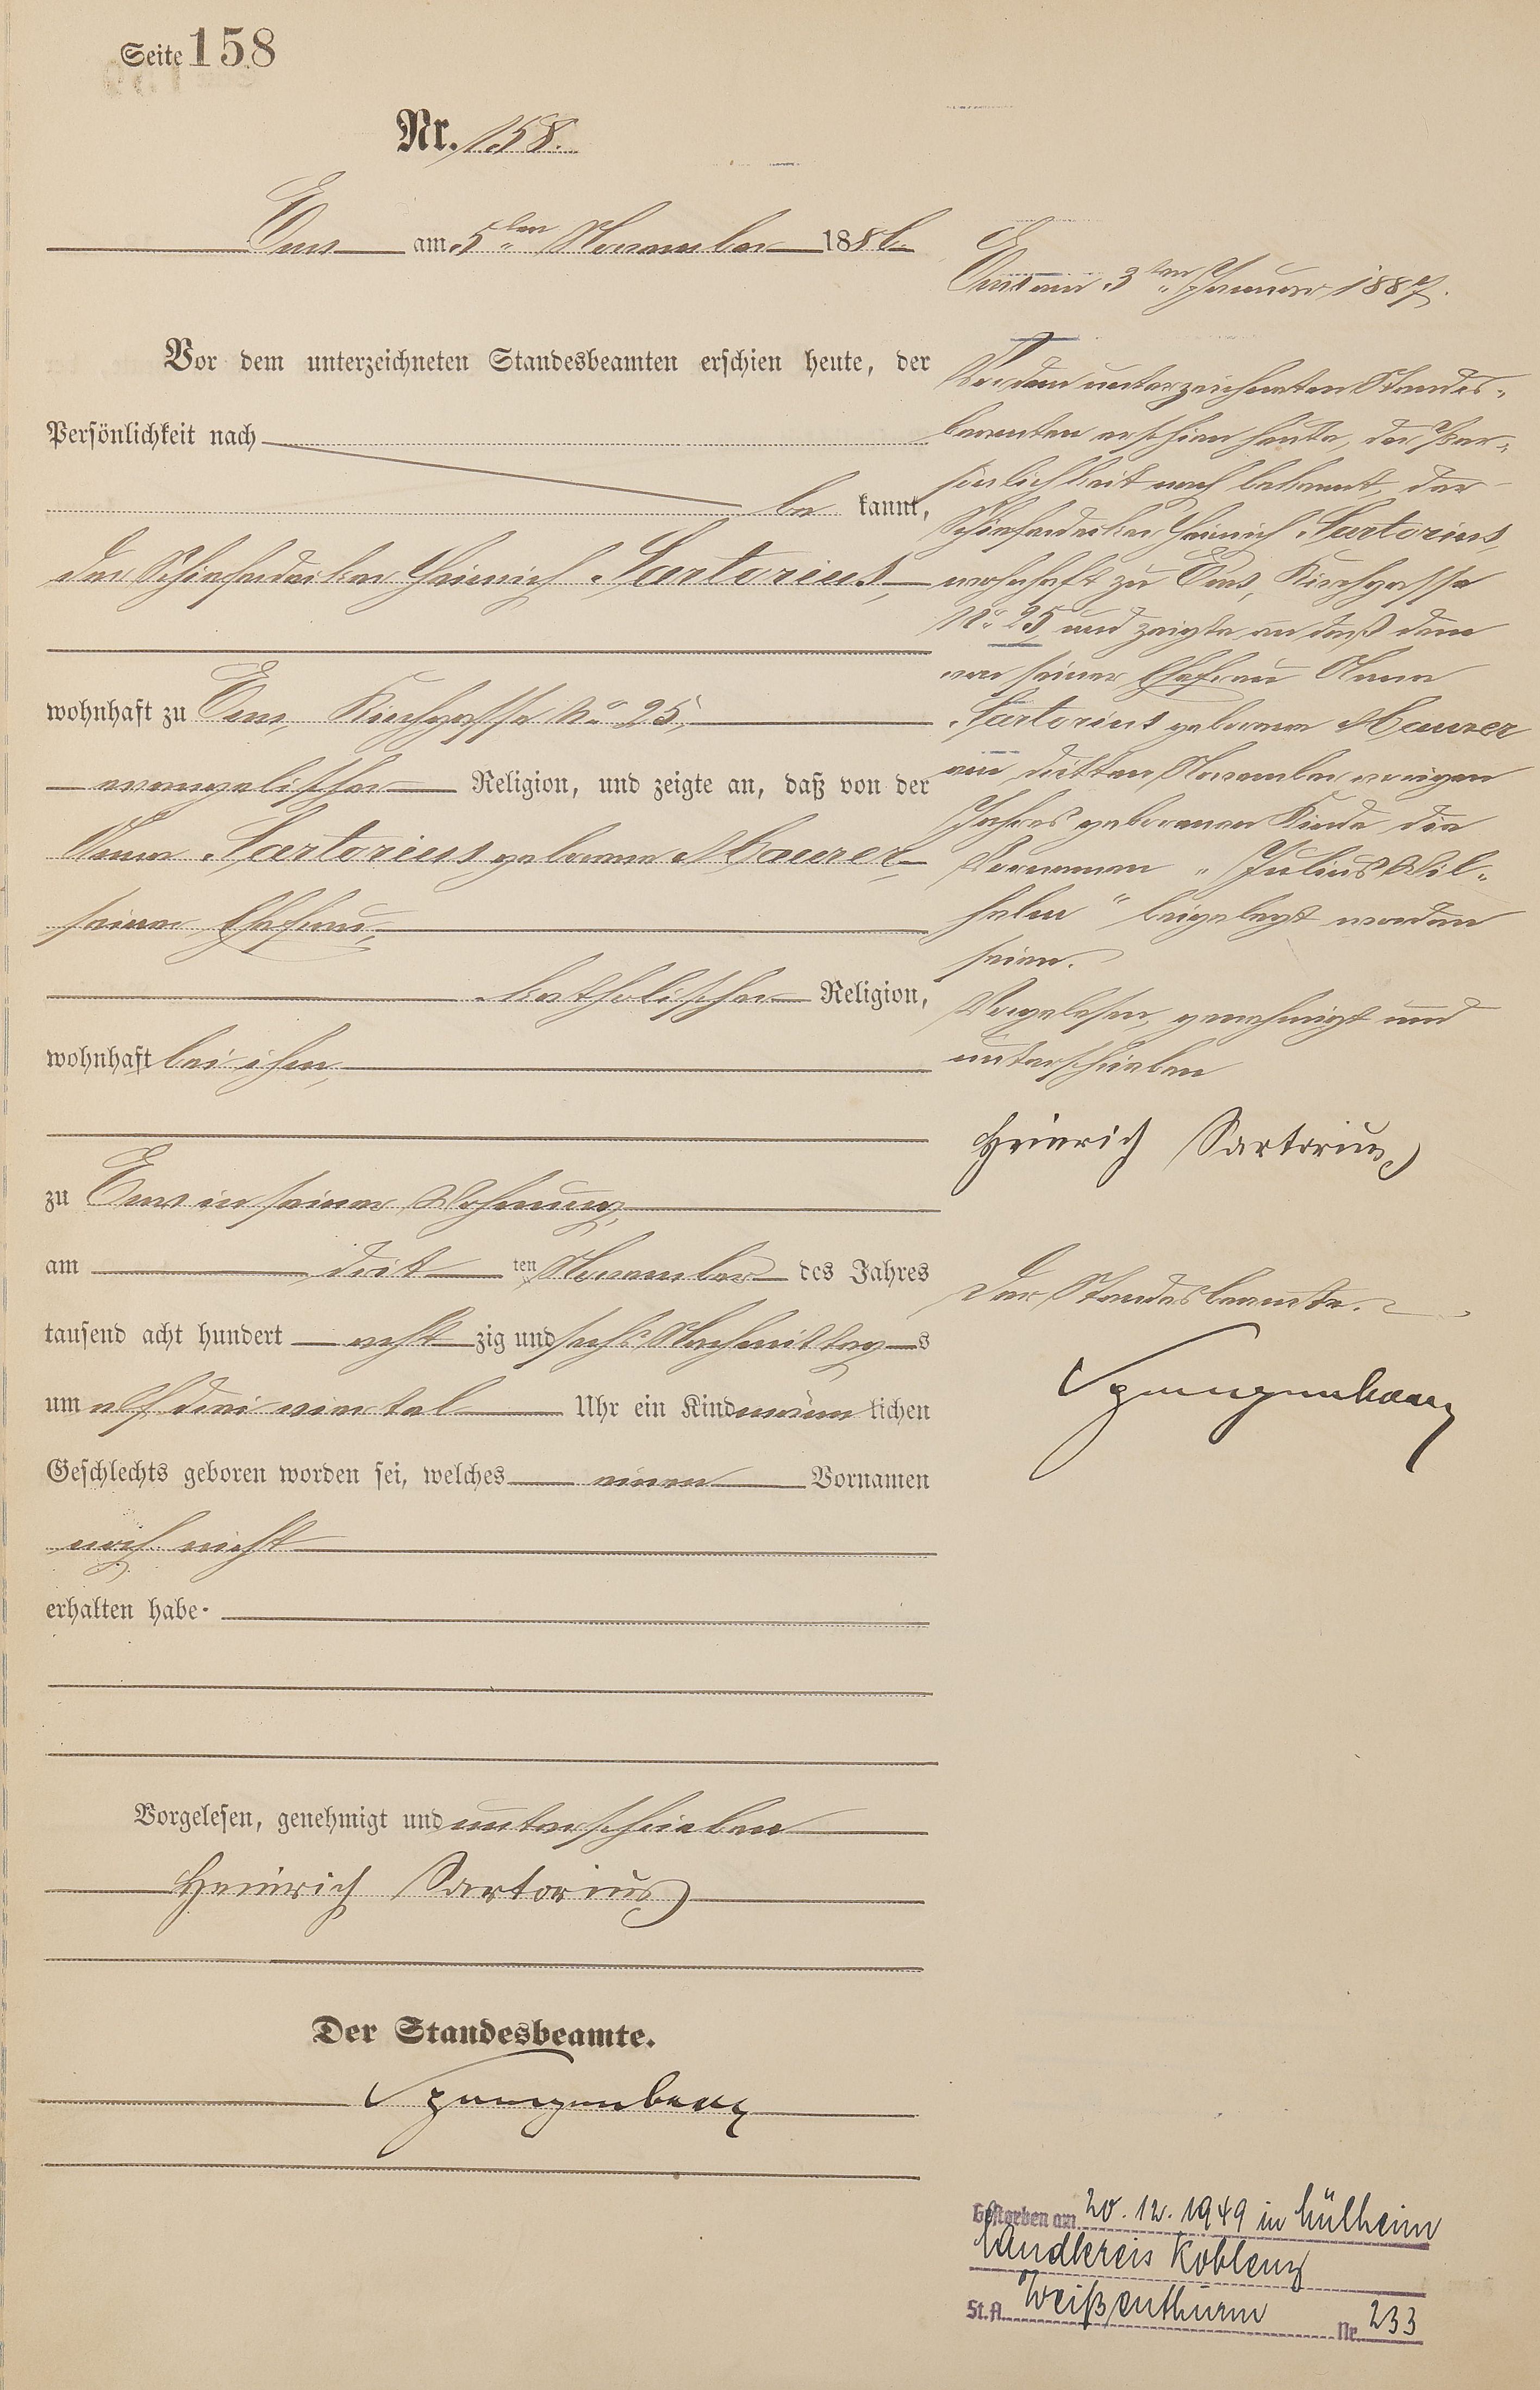 Seite 158
Nr. 158.
Ems am 5ten November 1886
Vor dem unterzeichneten Standesbeamten erschien heute, der
Persönlichkeit nach
be kannt,
der Schieferdecker Heinrich Sartorius,
wohnhaft zu Ems, Kirchgasse No 25,
evangelischer Religion, und zeigte an, daß von der
Anna Sartorius geborene Maurer,
seiner Ehefrau,
katholischer Religion,
wohnhaft bei ihm,
zu Ems in seiner Wohnung,
am dritten November des Jahres
tausend acht hundert acht zig und sechs Nachmittags
um elf drei viertel Uhr ein Kind männlichen
Geschlechts geboren worden sei, welches einen Vornamen
noch nicht
erhalten habe.
Vorgelesen, genehmigt und unterschrieben
Heinrich Sartorius
Der Standesbeamte.
Spangenberg
Ems am 3ten Januar 1887.
Vor dem unterzeichneten Standes-
beamten erschien heute, der Per-
sönlichkeit nach bekannt, der
Schieferdecker Heinrich Sartorius,
wohnhaft zu Ems, Kirchgasse
No 25, und zeigte an daß dem
von seiner Ehefrau Anna
Sartorius geborene Maurer
am dritten November vorigen
Jahres geborenen Kinde die
Vornamen „Julius Wil-
helm" beigelegt worden
seien.
Vorgelesen, genehmigt und
unterschrieben
Heinrich Sartorius
Der Standesbeamte.
Spangenberg
Gestorben am 20.12.1949 in Mülheim
Landkreis Koblenz
St.A. Weißenthurm Nr. 233